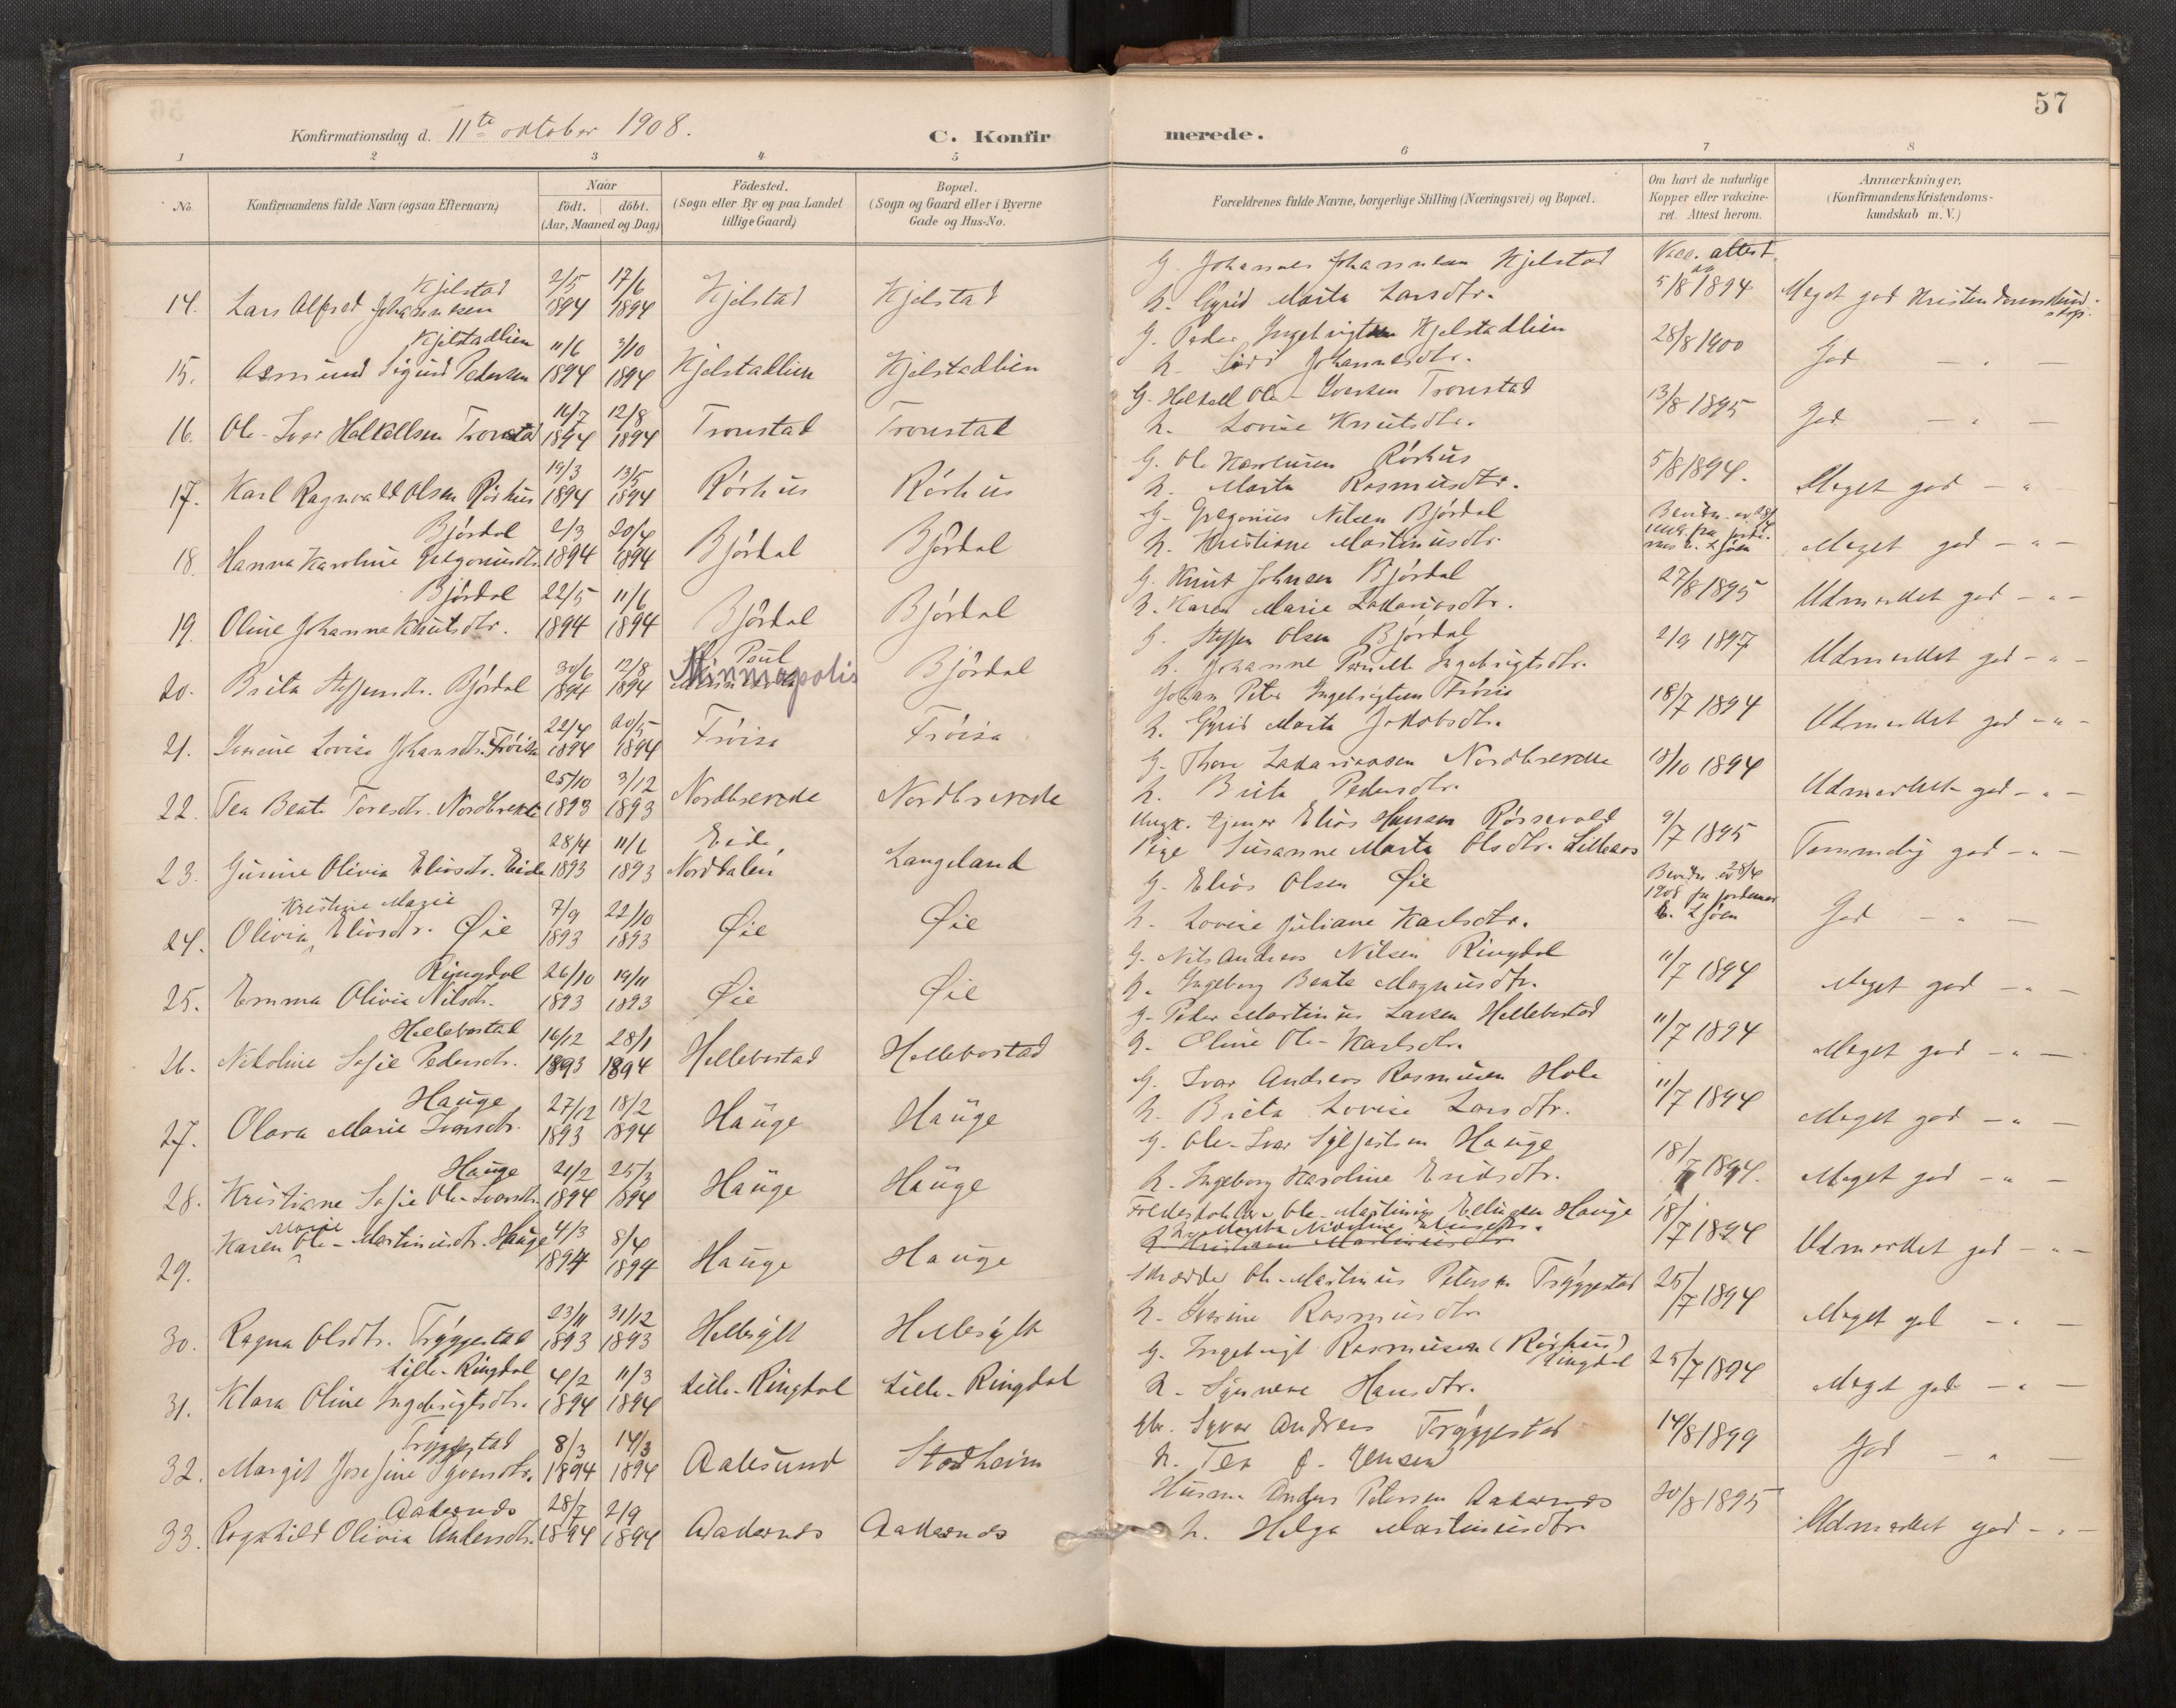 57
Konfirmationsdag d. 11te oktober 1908.
C. Konfir
merede.
1 2 3 4 5 6 7 8
No.
Konfirmandens fulde Navn (ogsaa Efternavn)
Naar
födt. döbt.
(Aar, Maaned og Dag)
Födested.
(Sogn eller By og paa Landet
tillige Gaard)
Bopæl.
(Sogn og Gaard eller i Byerne
Gade og Hus-No.
Forældrenes fulde Navne, borgerlige Stilling (Næringsvei) og Bopæl.
Om havt de naturlige
Kopper eller vakcine-
ret. Attest herom.
Anmærkninger.
(Konfirmandens Kristendoms-
kundskab m. V.)
Kjelstad 2/5 17/6 G. Johannes Johannesen Kjelstad Vacc. attest
14. Lars Alfred Johannesen 1894 1894 Kjelstad Kjelstad h. Gyrid Marta Larsdtr. 5/8 1894 Meget god Kristendomskund-
Kjelstadlien 11/6 3/10 G. Peder Ingebrigtsen Kjelstadlien 28/8 1900
15. Asmund Sigurd Pedersen 1894 1894 Kjelstadlien Kjelstadlien h. Johannesdtr. God - " -
16/7 12/8 G. Halkell Ole-Iversen Tronstad 13/8 1895
16. Ole-Iver Halkellsen Tronstad 1894 1894 Tronstad Tronstad h. Lovise Knutsdtr. God - " -
19/3 13/5 G. Ole Karolusen Rörhus 5/8 1894.
17. Karl Ragnvald Olsen Rörhus 1894 1894 Rörhus Rörhus h. Marta Rasmusdtr. Meget god - "
Björdal 2/3 20/4 G. Gregorius Nilsen Björdal
18. Hanna Karoline Gregoriusdtr. 1894 1894 Björdal Björdal h. Kristiane Martinusdtr. Meget god - " -
Björdal 22/5 11/6 G. Knut Johnsen Björdal 27/8 1895
19. Oline Johanne Knutsdtr. 1894 1894 Björdal Björdal h. Karen Marie Zakariasdtr. Udmerket god - " -
30/6 12/8 Paul G. Steffen Olsen Björdal 2/9 1897
20. Brita Steffensdtr. Björdal 1894 1894 Minniapolis Björdal h. Johanne Pernille Ingebrigtsdtr. Udmerket god - " -
22/4 20/5 Johan Peter Ingebrigtsen Fröisa 18/7 1894
21. Lovise Johansdtr. Fröisa 1894 1894 Fröisa Fröisa h. Gyrid Marta Jakobsdtr. Udmerket god - " -
25/10 3/12 G. Thore Zakariassen Nordbrekke 18/10 1894
22. Tea Beate Toresdtr. Nordbrekke 1893 1893 Nordbrekke Nordbrekke h. Brita Pedersdtr. Udmerket god - " -
28/4 11/6 Eide, Ungk. Ejner Elias Hansen Rössevold 9/7 1895
23. Gurine Olivia Eliasdtr. Eide 1893 1893 Norddalen Langeland Pige Susanne Marta Olsdtr. Lillebø Temmelig god - " -
Kristine Marie 7/9 22/10 G. Elias Olsen Øie
24. Olivia Eliasdtr. Øie 1893 1893 Øie Øie h. Lovise Juliane Karlsdtr. God - " -
Ringdal 26/10 19/11 G. Nils Andreas Nilsen Ringdal 11/7 1894
25. Emma Olivia Nilsdtr. 1893 1893 Øie Øie h. Ingeborg Beate Magnusdtr. Meget god - " -
Hellebostad 16/12 28/1 G. Peder Martinus Larsen Hellebostad 11/7 1894
26. Nikoline Sofie Pedersdtr. 1893 1894 Hellebostad Hellebostad h. Eline Ole-Karlsdtr. Meget god - " -
Hauge 27/12 18/2 G. Ivar Andreas Rasmusen Hole 11/7 1894
27. Olava Marie Ivarsdtr. 1893 1894 Hauge Hauge h. Brita Lovise Larsdtr. Meget god - " -
Hauge 21/2 25/3 G. Ole-Ivar Sylfestsen Hauge 18/7 1894.
28. Kristiane Sofie Ole-Ivarsdtr. 1894 1894 Hauge Hauge h. Ingeborg Karoline Eriksdtr. Meget god - " -
Marie 4/3 8/4 Ole-Martinus Ellingsen Hauge 18/7 1894
29. Karen Ole-Martinusdtr. Hauge 1894 1894 Hauge Hauge Udmerket god - " -
23/11 31/12 Skrædder Ole-Martinus Petersen Tryggestad 25/7 1894
30. Ragna Olsdtr. Tryggestad 1893 1893 Hellesylt Hellesylt h. Iverine Rasmusdtr. Meget god - " -
Lille-Ringdal 4/2 11/3 G. Ingebrigt Rasmusen (Rörhus) Ringdal 25/7 1894
31. Klara Oline Ingebrigtsdtr. 1894 1894 Lille-Ringdal Lille-Ringdal h. Synneve Hansdtr. Meget god - " -
Tryggestad 8/3 14/3 Syver Andreas Tryggestad 14/8 1899
32. Margit Josefine Syversdtr. 1894 1894 Aalesund Stadheim h. Tea J. Jensen God - " -
Aakernes 28/7 2/9 Husm. Anders Petersen Aakernes 30/8 1895
33. Ragnhild Olivia Andersdtr. 1894 1894 Aakernes Aakernes h. Helga Martinusdtr. Udmerket god - " -